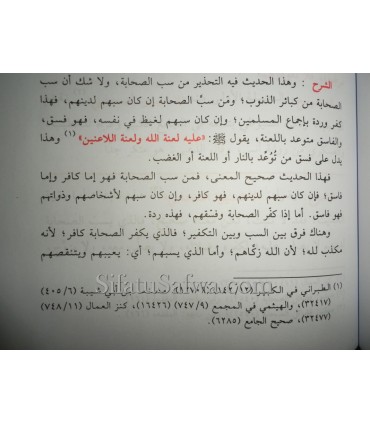 الشرح : وهذا الحديث فيه التحذير من سب الصحابة، ولا شك أن سب
الصحابة من كبائر الذنوب؛ ومَن سبَّ الصحابة إن كان سبهم لدينهم، فهذا
كفر وردة بإجماع المسلمين؛ وإن كان سبهم لغيظ في نفسه، فهو فسق،
والفاسق متوعد باللعنة، يقول ﷺ: «عليه لعنة الله ولعنة اللاعنين» (١) وهذا
يدل على فسق من تُوُعِّد بالنار أو اللعنة أو الغضب.
فهذا الحديث صحيح المعنى، فمن سب الصحابة فهو إما كافر وإما
فاسق؛ فإن كان سبهم لدينهم، فهو كافر، وإن كان سبهم لأشخاصهم وذواتهم
فهو فاسق. أما إذا كفّر الصحابة وفسّقهم، فهذه ردة.
وهناك فرق بين السب وبين التكفير؛ فالذي يكفر الصحابة كافر؛ لأنه
مكذب لله؛ لأن الله زكّاهم؛ وأما الذي يسبهم؛ أي: يعيبهم ويتنقصهم
(١) الطبراني في الكبير (١٤٢/١٢) أبي شيبة (٤٠٥/٦)
(٣٢٤١٧)، والهيثمي في المجمع (٧٤٧/٩) (١٦٤٢٦)، كنز العمال (٧٤٨/١١)
(٣٢٤٧٧)، صحيح الجامع (٦٢٨٥).
SifatuSafwa.com